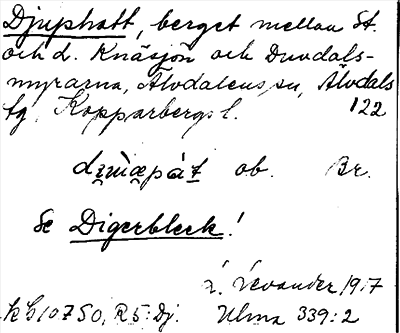 Djuphatt, berget mellan St.
och L. Knäsjön och Duvdals-
myrarna, Älvdalens sn, Älvdals
tg, Kopparbergs l. 122
ob. Br.
Se Digerbleck!
L. Levander 1917
R5: Dj. Ulma 339:2